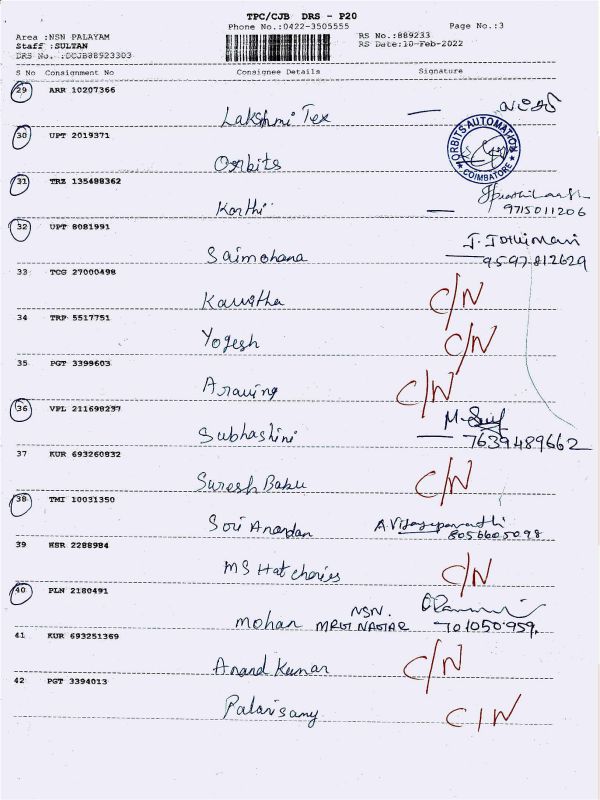 TPC/CJB DRS - P20
Phone No.:0422-3505555
Page No.:3
Area :NSN PALAYAM
RS No.:889233
Staff :SULTAN
RS Date:10-Feb-2022
DRS No. :DCJB88923303
S No Consignment No Consignee Details Signature
29 ARR 10207366
Lakshmi Tex
30 UPT 2019371
ORBITS AUTOMATION
COIMBATORE
Orbits
31 TRZ 135488362
Karthi
9715011206
32 UPT 8081991
J. Jothimani
Saimohana 9597812629
33 TCG 27000498
Kavitha C/N
34 TRP 5517751
Yogesh C/N
35 PGT 3399603
Aravind C/N
36 VPL 211698237
Subhashini 7639489662
37 KUR 693260832
Suresh Babu C/N
38 TMI 10031350
Sori Anandan A. Vijayaparvathi
8056605098
39 KSR 2288984
MS Hatcheries C/N
40 PLN 2180491
NSN.
mohan MRGT NAGAR 701050959.
41 KUR 693251369
Anand Kumar C/N
42 PGT 3394013
Palanisamy C/N